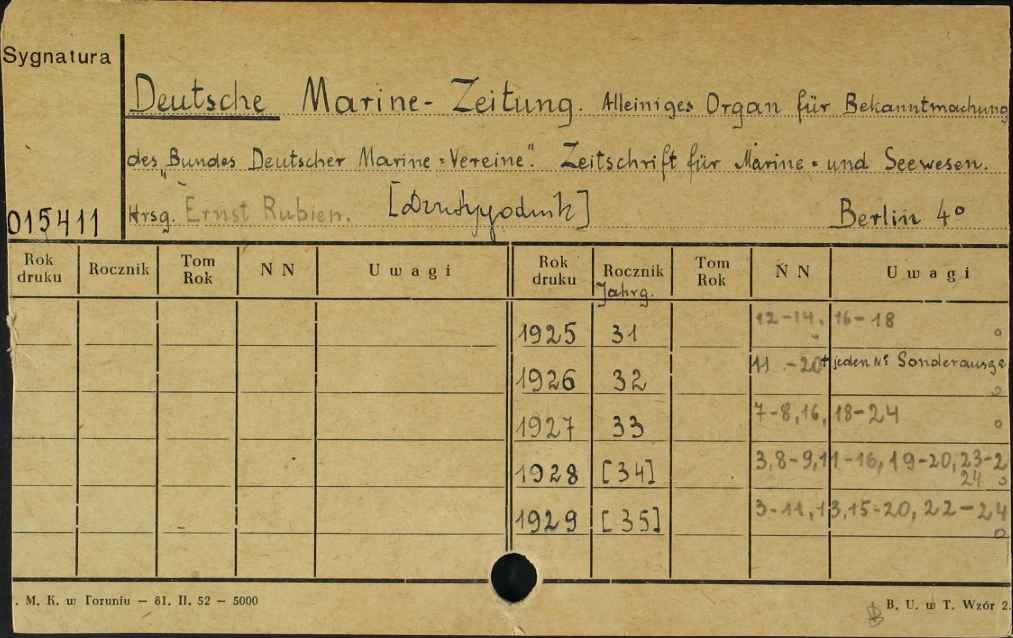 Sygnatura
Deutsche Marine-Zeitung. Alleiniges Organ für Bekanntmachung
des „Bundes Deutscher Marine=Vereine". Zeitschrift für Marine= und Seewesen.
015411 Hrsg. Ernst Rubien. [Dwutygodnik] Berlin 4°
Rok druku Rocznik Tom Rok N N Uwagi Rok druku Rocznik Jahrg. Tom Rok N N Uwagi
1925 31 12-14, 16-18
1926 32 11-20 + jeden Nr Sonderausg.
1927 33 7-8, 16, 18-24
1928 [34] 3, 8-9, 11-16, 19-20, 23-
24
1929 [35] 3-11, 13, 15-20, 22-24
. M. K. w Toruniu — 61. II. 52 — 5000
B. U. w T. Wzór 2.